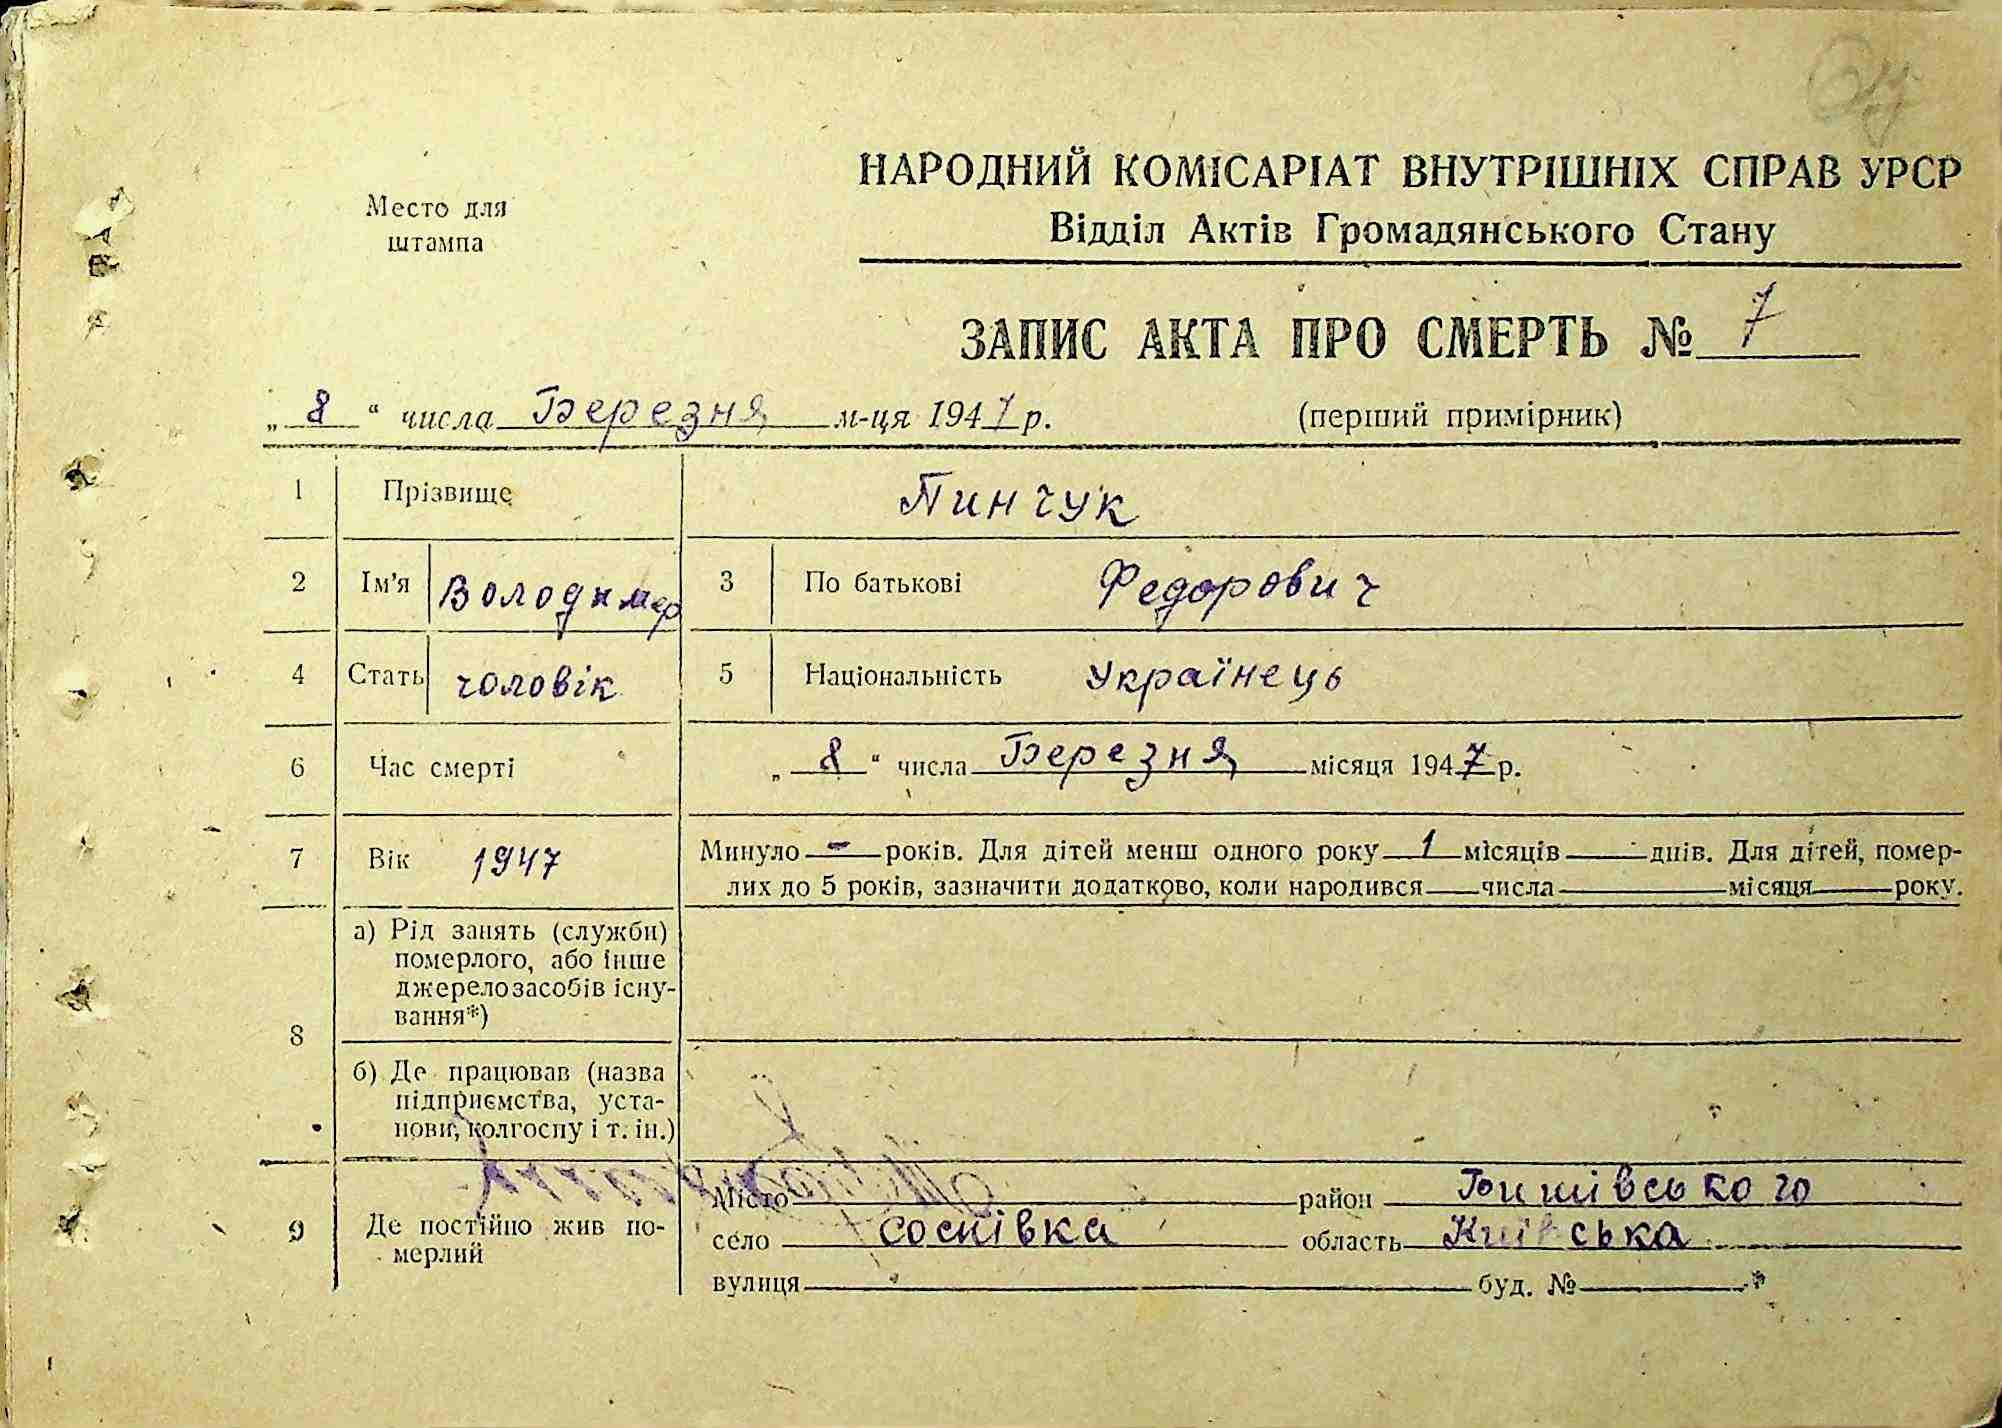 НАРОДНИЙ КОМІСАРІАТ ВНУТРІШНІХ СПРАВ УРСР
Место для штампа
Відділ Актів Громадянського Стану
ЗАПИС АКТА ПРО СМЕРТЬ № 7
„ 8 “ числа Березня м-ця 1947 р. (перший примірник)
1 Прізвище Пинчук
2 Ім'я Володимер 3 По батькові Федорович
4 Стать чоловік 5 Національність Українець
6 Час смерті „ 8 “ числа Березня місяця 1947 р.
7 Вік 1947 Минуло - років. Для дітей менш одного року 1 місяців днів. Для дітей, помер-
лих до 5 років, зазначити додатково, коли народився числа місяця року.
8 а) Рід занять (служби)
померлого, або інше
джерело засобів існу-
вання*)
б) Де працював (назва
підприємства, уста-
нови, колгоспу і т. ін.)
9 Де постійно жив по-
мерлий
Місто район
село Соснівка область Київська
вулиця буд. №